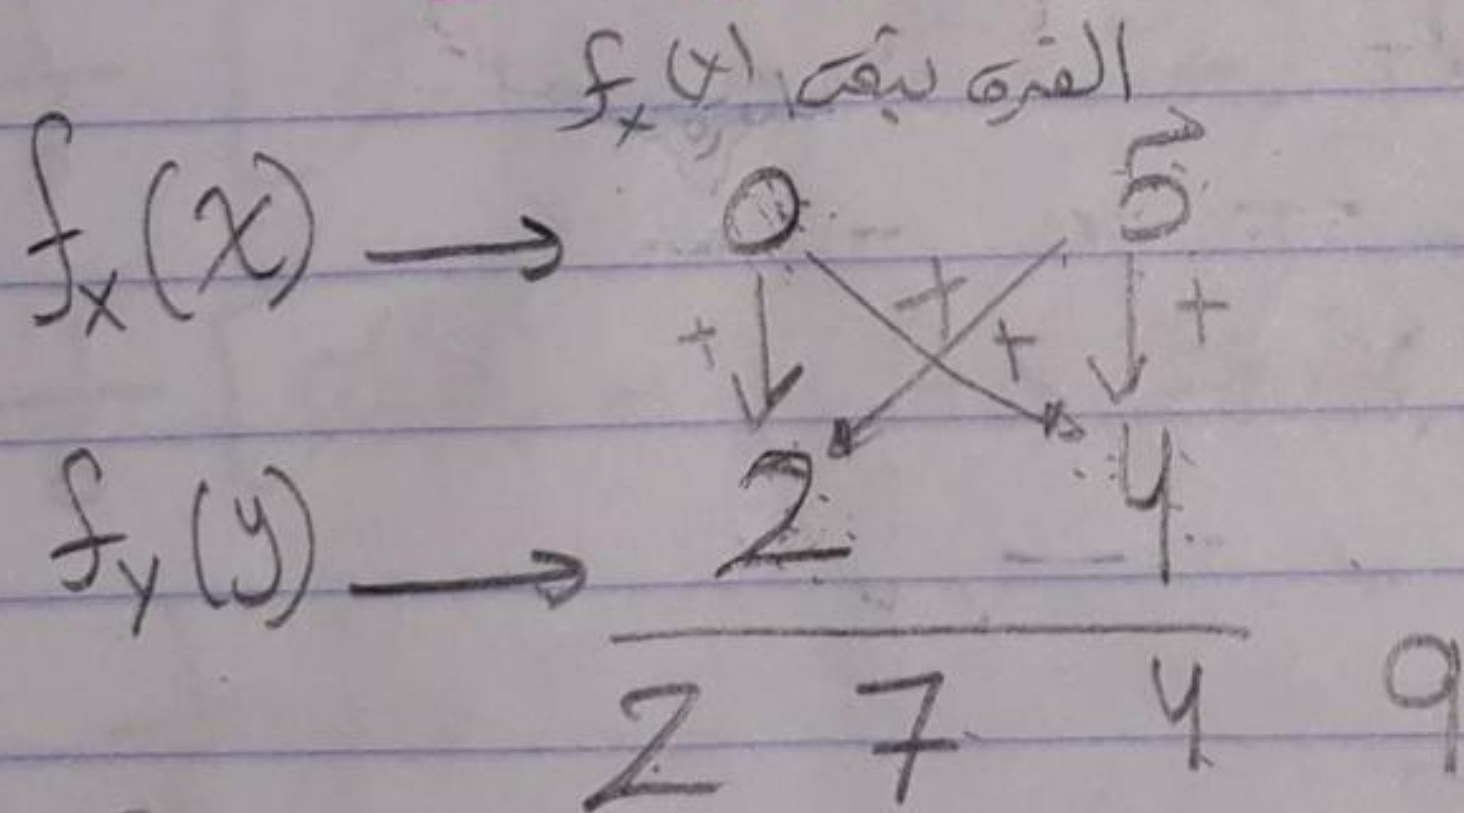 الفترة بتقت f_x(x)
f_x(x) → 0 5
+ + + +
f_y(y) → 2 4
2 7 4 9